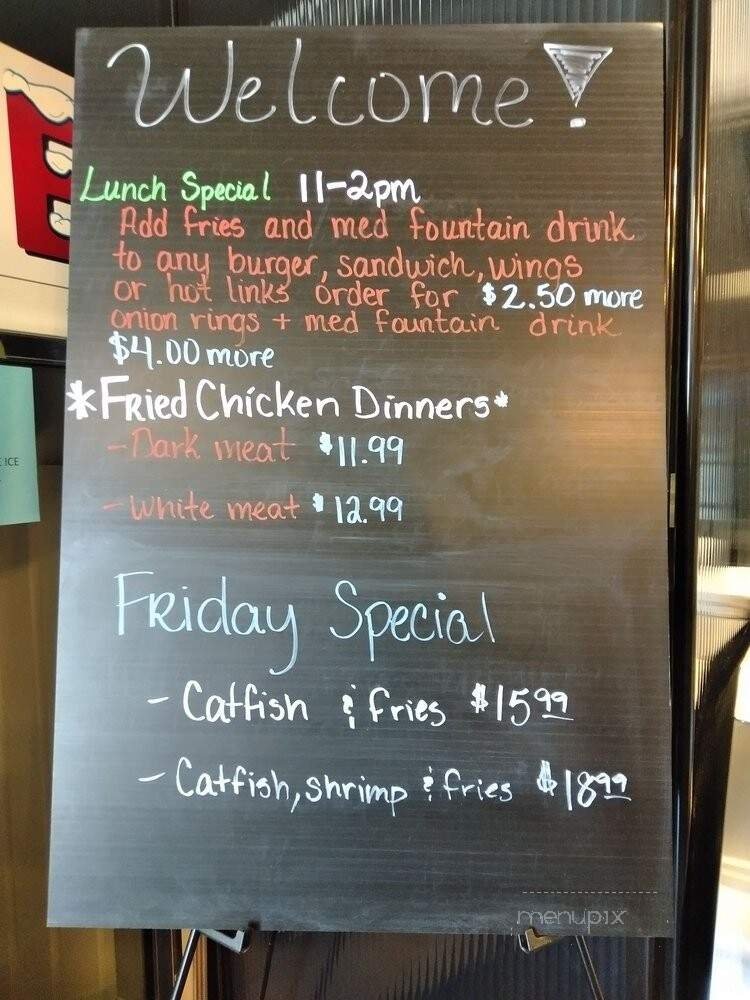 Welcome!
Lunch Special 11-2pm
Add fries and med fountain drink
to any burger, sandwich, wings
or hot links order for $2.50 more
onion rings + med fountain drink
$4.00 more
*FRied Chicken Dinners*
-Dark meat $11.99
-White meat $12.99
FRiday Special
- Catfish & fries $15.99
- Catfish, shrimp & fries $18.99
E
ICE
menupix